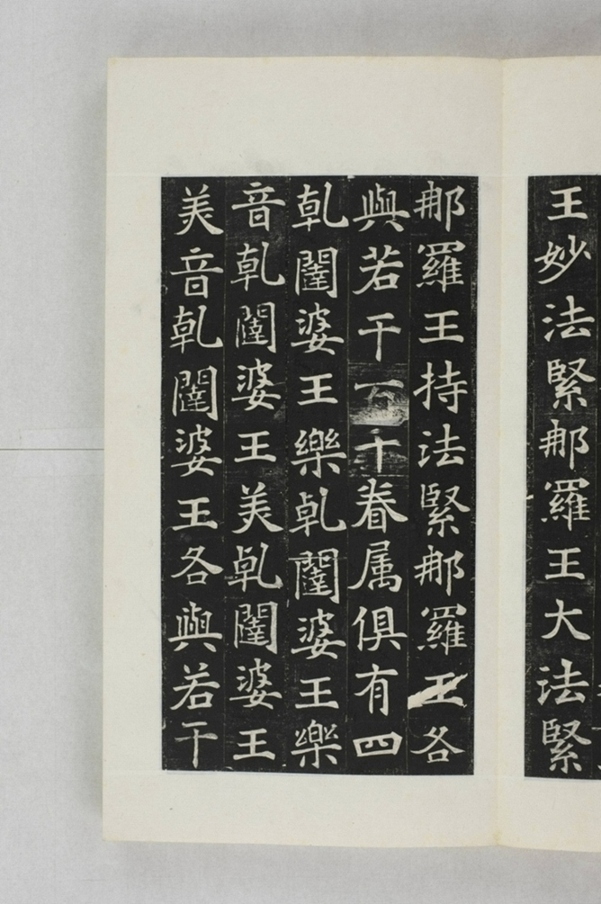 王妙法緊那羅王大法緊
那羅王持法緊那羅王各
與若干百千眷属俱有四
乹闥婆王樂乹闥婆王樂
音乹闥婆王美乹闥婆王
美音乹闥婆王各與若干